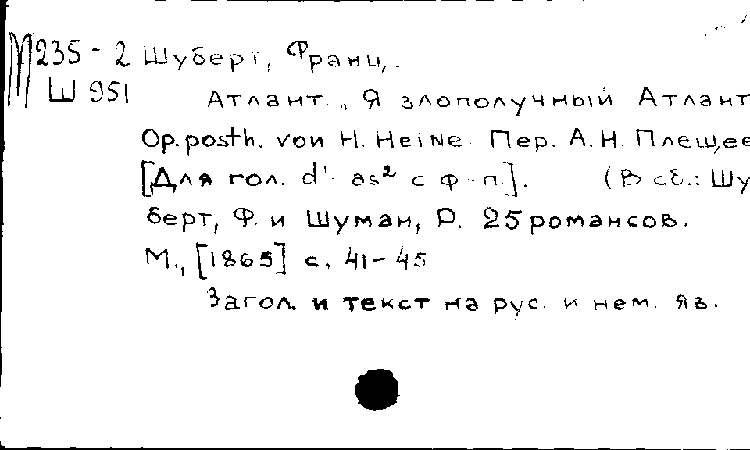 М235-2 Шуберт, Франц.
Ш 951
Атлант. „Я злополучный Атлант
Op.posth. von H. Heine. Пер. А.Н. Плещее
[Для гол. d'- as² с ф-п.]. (В сб.: Шу
берт, Ф. и Шуман, Р. 25 романсов.
М., [1865] с. 41-45
Загол. и текст на рус. и нем. яз.